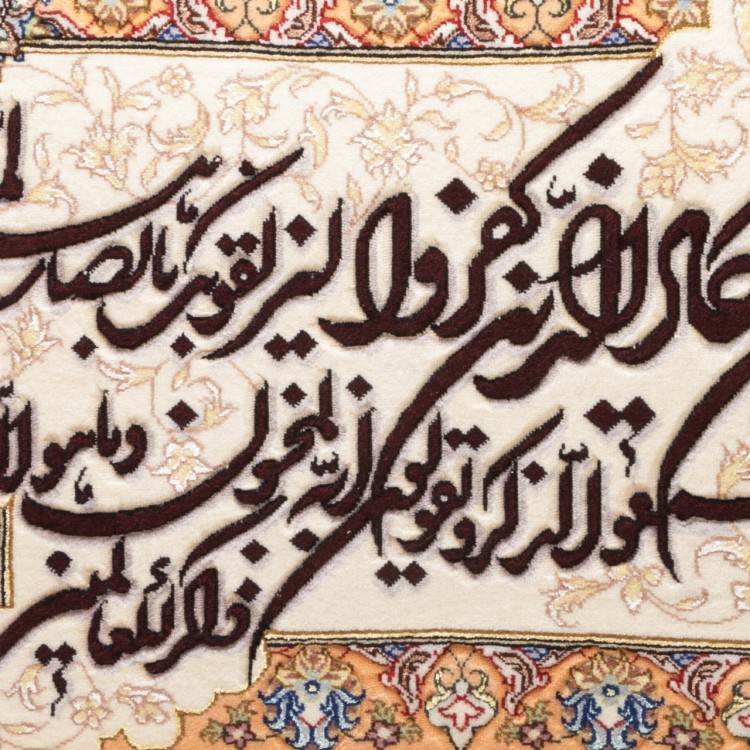 الذين كفروا ليزلقونك بابصارهم
سمعوا الذكر و يقولون انه لمجنون وما هو الا
ذكر للعالمين